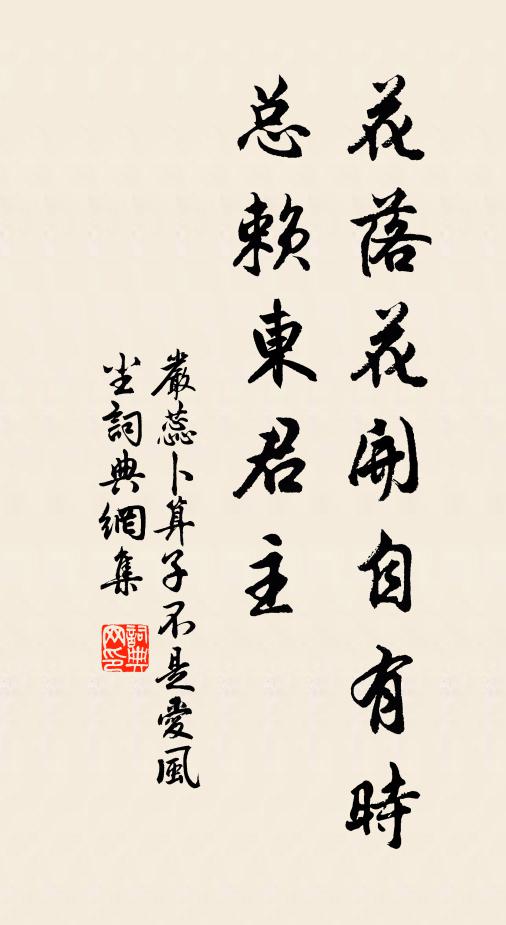 花落花開自有時
总賴東君主
嚴蕊卜算子不是愛風
尘詞典網集
詞典网印